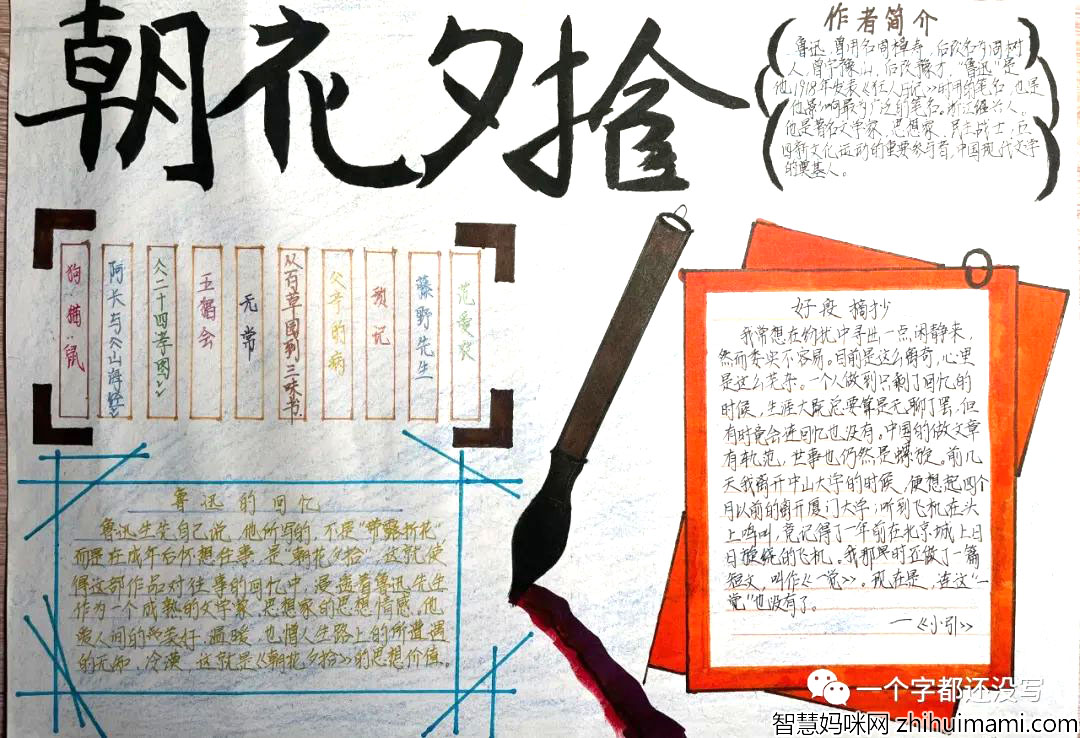 朝花夕拾
作者简介
鲁迅,曾用名周樟寿,后改名为周树
人,曾字豫山,后改豫才,“鲁迅”是
他1918年发表《狂人日记》时用的笔名,也是
他影响最为广泛的笔名。浙江绍兴人。
他是著名文学家、思想家、民主战士,五
四新文化运动的重要参与者,中国现代文学
的奠基人。
狗·猫·鼠
阿长与《山海经》
《二十四孝图》
五猖会
无常
从百草园到三味书
父亲的病
琐记
藤野先生
范爱农
鲁迅的回忆
鲁迅先生自己说,他所写的,不是“带露折花”
而是在成年后回想往事,是“朝花夕拾”,这就使
得这部作品对往事的回忆中,浸透着鲁迅先生
作为一个成熟的文学家、思想家的思想情感,他
爱人间的美好、温暖,也憎人生路上的所遭遇
的无知、冷漠,这就是《朝花夕拾》的思想价值。
好段摘抄
我常想在纷扰中寻出一点闲静来,
然而委实不容易。目前是这么离奇,心里
是这么芜杂。一个人做到只剩了回忆的
时候,生涯大概总要算是无聊了罢,但
有时竟会连回忆也没有。中国的做文章
有轨范,世事也仍然是螺旋。前几
天我离开中山大学的时候,便想起四个
月以前的离开厦门大学;听到飞机在头
上鸣叫,竟记得了一年前在北京城上日
日旋绕的飞机。我那时还做了一篇
短文,叫作《一觉》。现在是,连这“一
觉”也没有了。
—《小引》
一个字都还没写
智慧妈咪网 zhihuimami.com